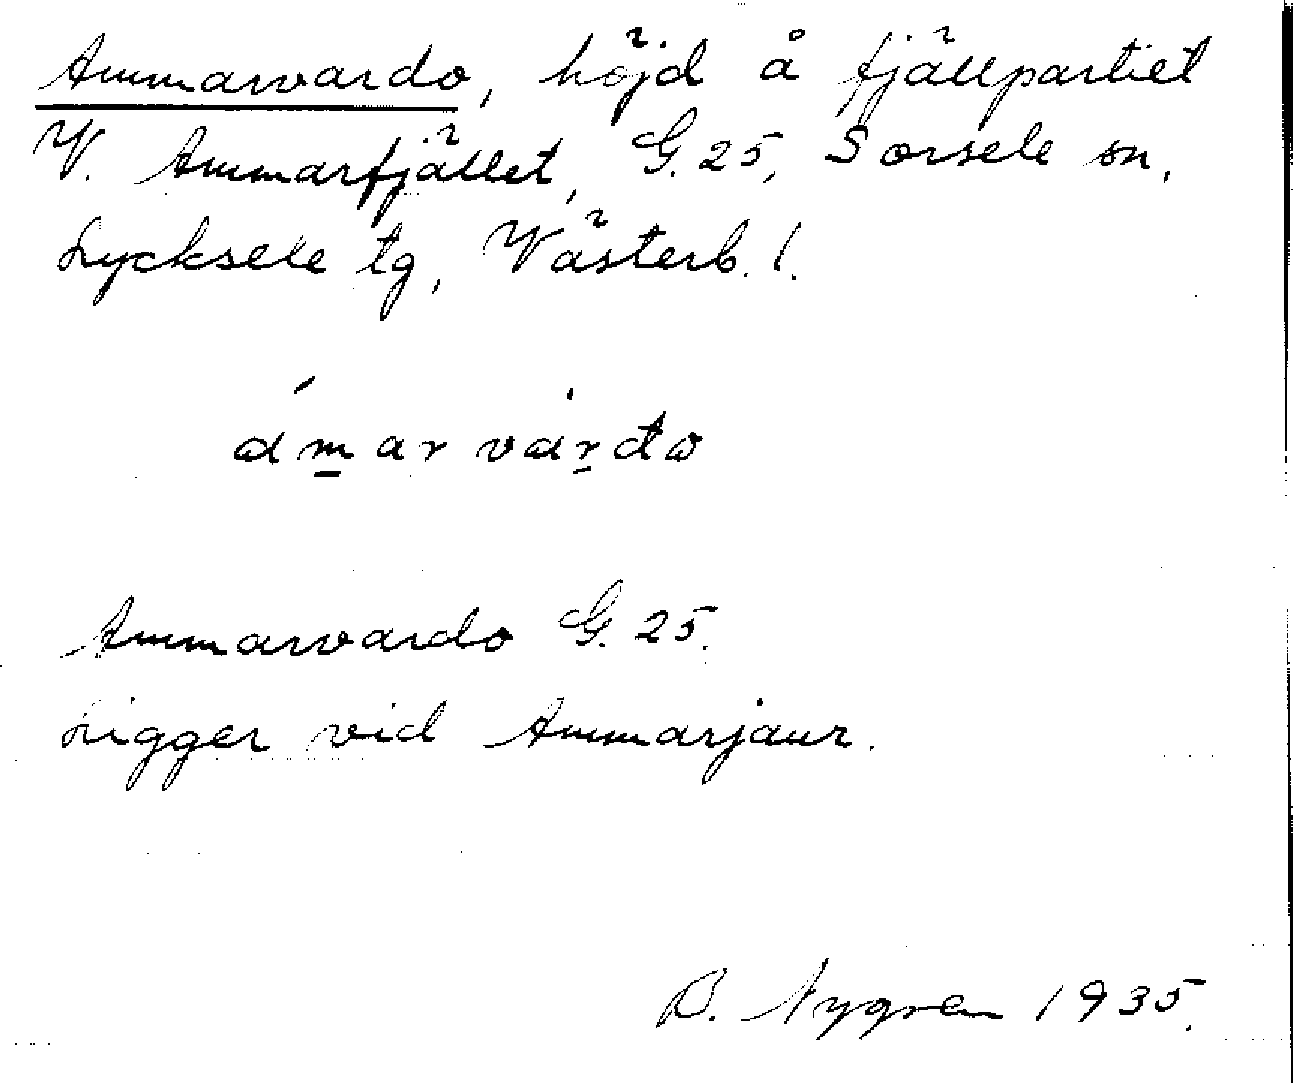 Ammarvardo, höjd å fjällpartiet
V. Ammarfjället, G. 25, Sorsele sn,
Lycksele tg, Västerb. l.
ámar várđo
Ammarvardo G. 25.
Ligger vid Ammarjaur.
B. Nygren 1935.